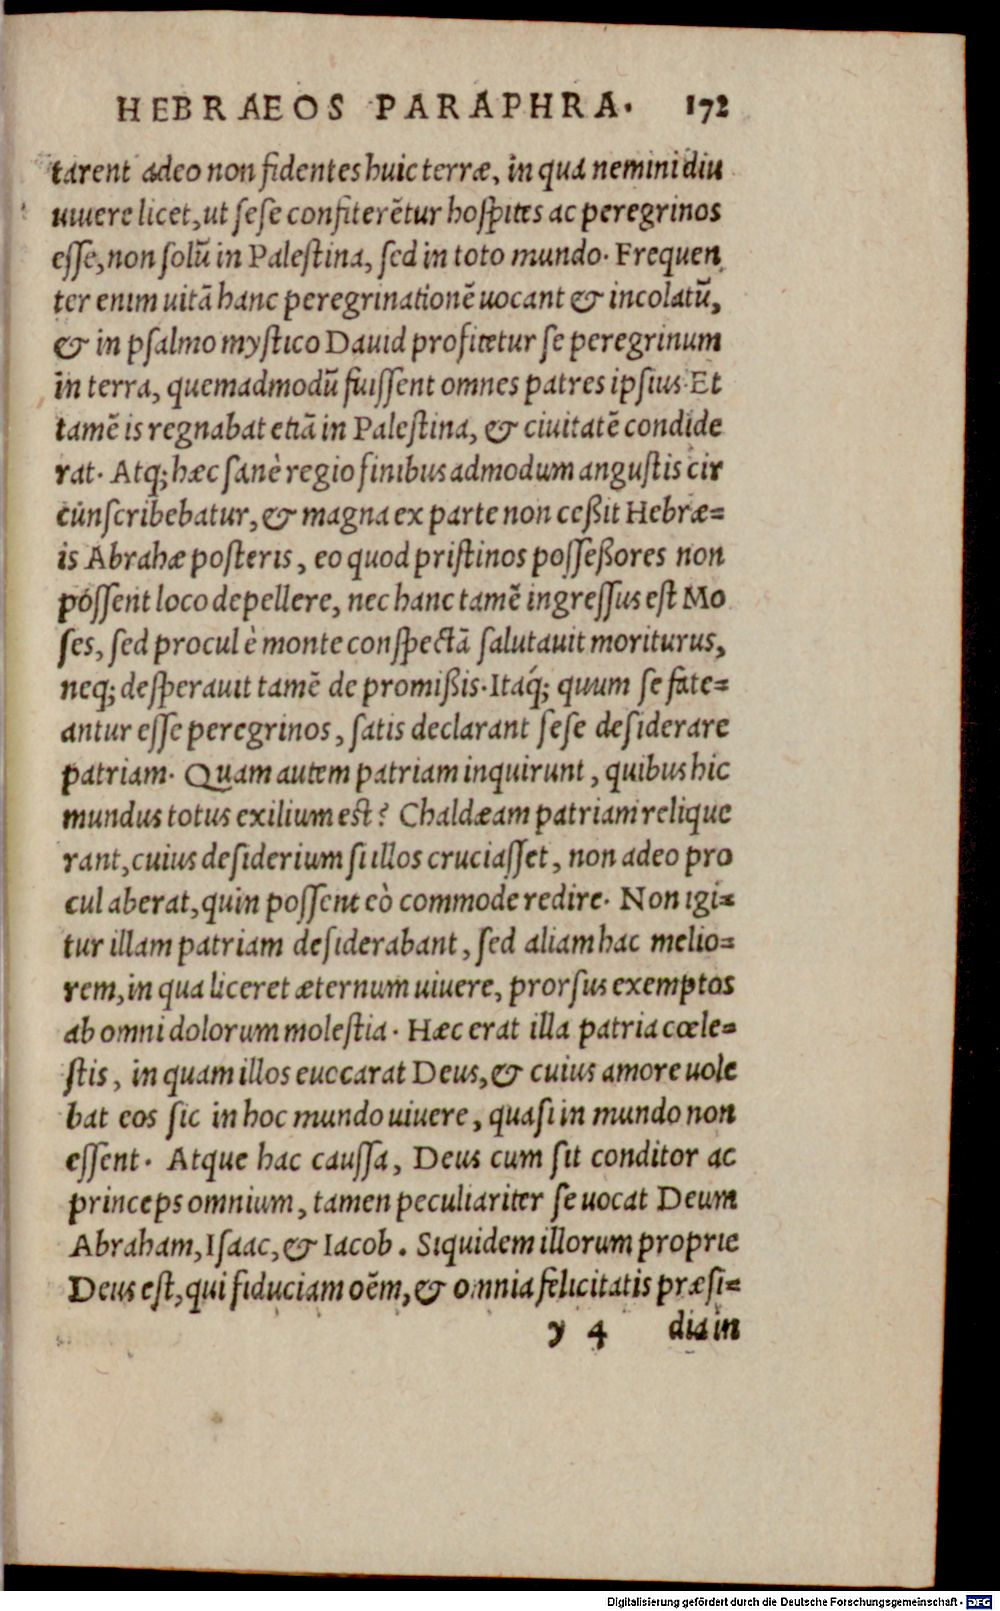 HEBRAEOS PARAPHRA. 172
tarent adeo non fidentes huic terræ, in qua nemini diu
uiuere licet, ut ſeſe confiterētur hoſpites ac peregrinos
eſſe, non ſolũ in Paleſtina, ſed in toto mundo. Frequen
ter enim uitā hanc peregrinationē uocant & incolatũ,
& in pſalmo myſtico Dauid profitetur ſe peregrinum
in terra, quemadmodũ fuiſſent omnes patres ipſius. Et
tamē is regnabat etiā in Paleſtina, & ciuitatē condide
rat. Atq; hæc ſanè regio finibus admodum anguſtis cir
cũnſcribebatur, & magna ex parte non ceßit Hebræ=
is Abrahæ poſteris, eo quod priſtinos poſſeßores non
poſſent loco depellere, nec hanc tamē ingreſſus eſt Mo
ſes, ſed procul è monte conſpectā ſalutauit moriturus,
neq; deſperauit tamē de promißis. Itaq́; quum ſe fate=
antur eſſe peregrinos, ſatis declarant ſeſe deſiderare
patriam. Quam autem patriam inquirunt, quibus hic
mundus totus exilium eſt? Chaldæam patriam relique
rant, cuius deſiderium ſi illos cruciaſſet, non adeo pro
cul aberat, quin poſſent eò commode redire. Non igi=
tur illam patriam deſiderabant, ſed aliam hac melio=
rem, in qua liceret æternum uiuere, prorſus exemptos
ab omni dolorum moleſtia. Hæc erat illa patria cœle=
ſtis, in quam illos euocarat Deus, & cuius amore uole
bat eos ſic in hoc mundo uiuere, quaſi in mundo non
eſſent. Atque hac cauſſa, Deus cum ſit conditor ac
princeps omnium, tamen peculiariter ſe uocat Deum
Abraham, Iſaac, & Iacob. Siquidem illorum proprie
Deus eſt, qui fiduciam oēm, & omnia felicitatis præſi=
y 4 dia in
Digitalisierung gefördert durch die Deutsche Forschungsgemeinschaft - DFG